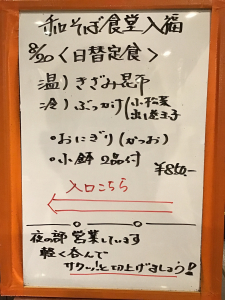 和そば食堂入福
8/20〈日替定食〉
温)きざみ昆布
冷)ぶっかけ(小松菜
出し玉子
・おにぎり(かつお)
・小鉢 2品付
¥850-
入口こちら
夜の部 営業しています
軽く呑んで
サクッ!と切上げましょう!